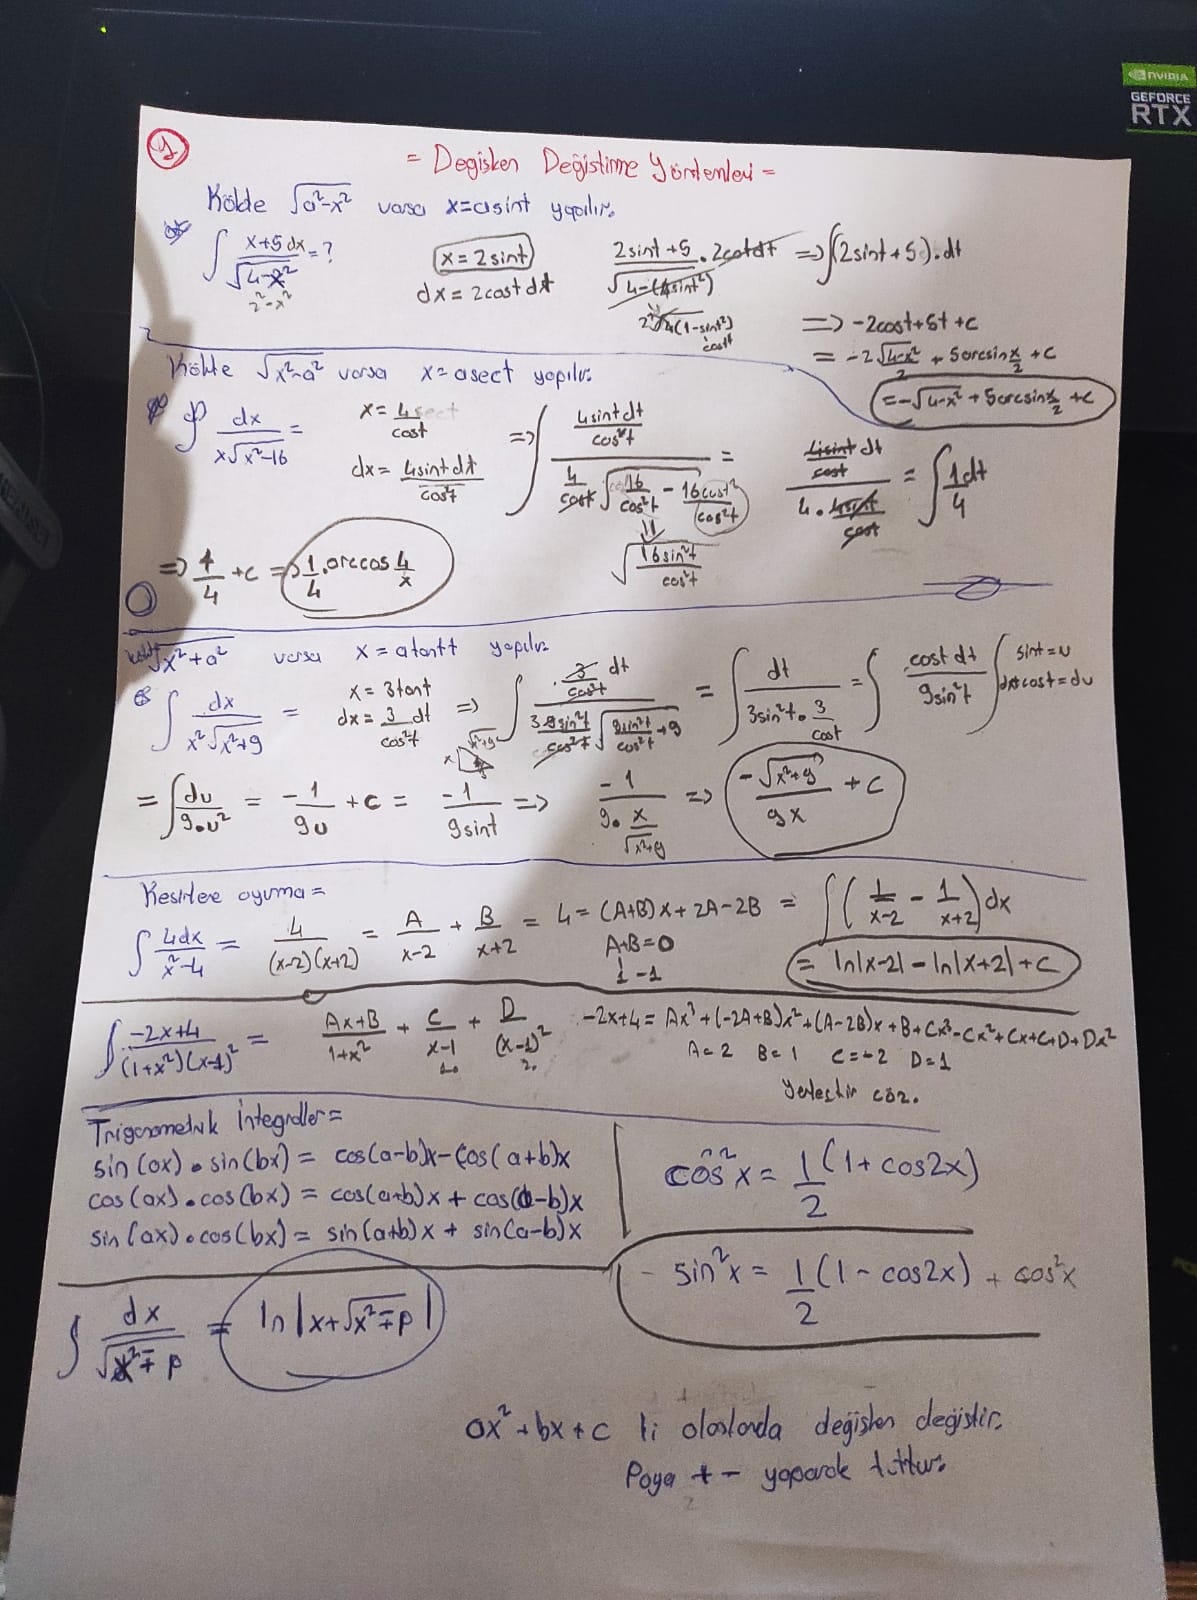 NVIDIA
GEFORCE
RTX
1
= Değişken Değiştirme Yöntemleri =
Kökde √a²-x² varsa x=asint yapılır.
∫ x+5 dx / √4-x² = ?
2²-x²
x=2sint
dx=2costdt
2sint+5 / √4-(4sint²) . 2costdt => ∫(2sint+5).dt
2 √4(1-sint²)
cost²
=> -2cost+5t+c
= -2 √4-x² / 2 + 5arcsin x/2 +c
= -√4-x² + 5arcsin x/2 +c
Kökte √x²-a² varsa x=asect yapılır.
∫ dx / x√x²-16 =
x= 4 / cost
dx= 4sintdt / cos²t
=> ∫ 4sintdt / cos²t / 4 / cost √ 16 / cos²t - 16cost² / cos²t =
√ 16sin²t / cos²t
4sint / cost dt / 4. 4sint / cost = ∫ 1dt / 4
=> t / 4 +c => 1 / 4 . arccos 4 / x
kökte √x²+a² varsa x=atant yapılır
∫ dx / x²√x²+9 =
x=3tant
dx= 3 / cos²t dt
=> ∫ 3 / cos²t dt / 9sin²t / cos²t √ 9sin²t / cos²t +9 = ∫ dt / 3sin²t. 3 / cost = ∫ cost dt / 9sin²t
sint=u
cost=du
√x²+9
x
= ∫ du / 9.u² = -1 / 9u +c = -1 / 9sint => -1 / 9. x / √x²+9 => -√x²+9 / 9x +c
Kesirlere ayırma=
∫ 4dx / x²-4 = 4 / (x-2)(x+2) = A / x-2 + B / x+2 = 4=(A+B)x+2A-2B = ∫( 1 / x-2 - 1 / x+2 )dx
A+B=0
1 -1
= ln|x-2| - ln|x+2| +c
∫ -2x+4 / (1+x²)(x-1)² = Ax+B / 1+x² + C / x-1 + D / (x-1)²
-2x+4=Ax³+(-2A+B)x²+(A-2B)x+B+Cx³-Cx²+Cx+C+D+Dx²
A=2 B=1 C=-2 D=1
Yerleştir çöz.
Trigonometrik İntegraller=
sin(ax).sin(bx)= cos(a-b)x-cos(a+b)x
cos(ax).cos(bx)= cos(a+b)x+cos(a-b)x
sin(ax).cos(bx)= sin(a+b)x+sin(a-b)x
cos²x= 1 / 2 (1+cos2x)
sin²x= 1 / 2 (1-cos2x) + cos²x
∫ dx / √x²∓p = ln|x+√x²∓p|
ax²+bx+c li olanlarda değişken değiştir.
Paya + - yaparak tuttur.